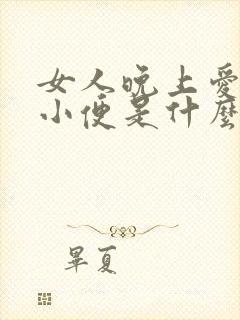 女人晚上愛
小便是什麼
畢夏